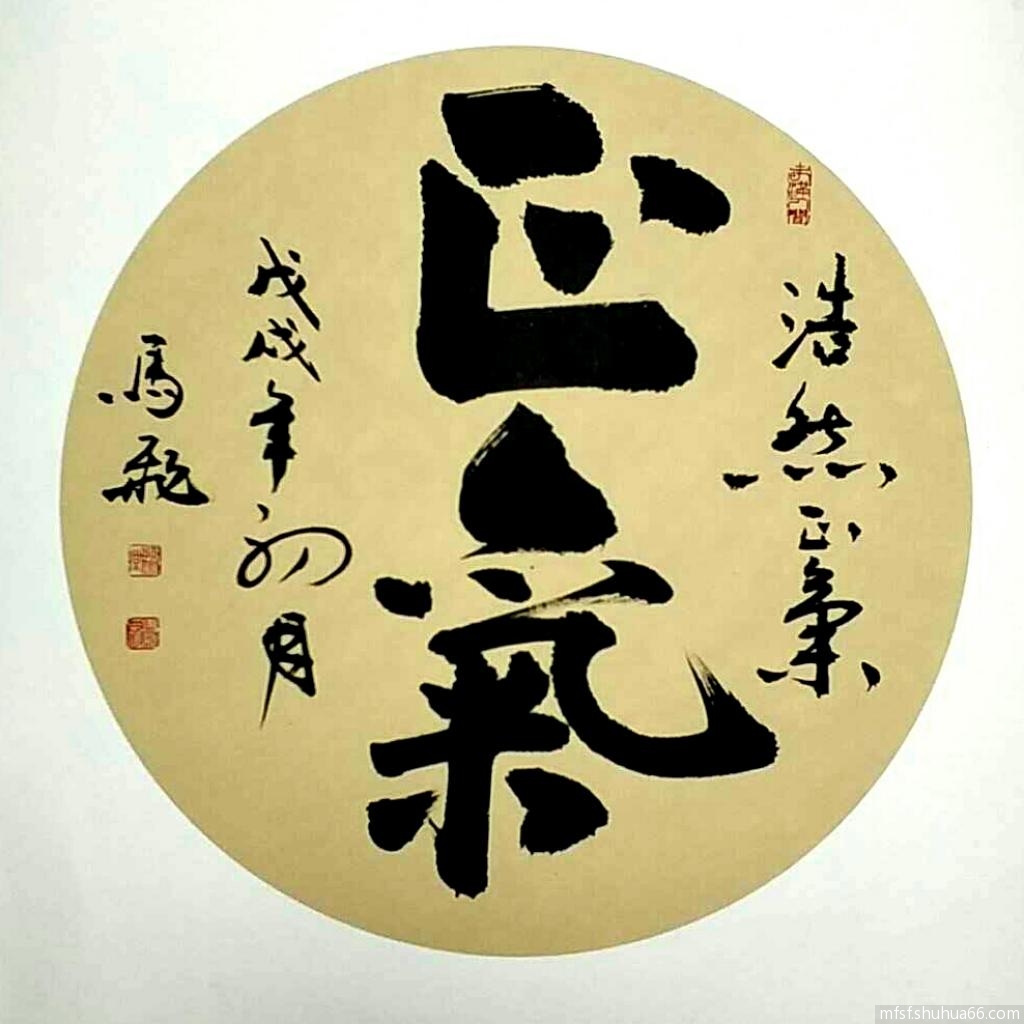 浩然正氣
正氣
戊戌年初月
馬飛
mfsf.shuhua66.com